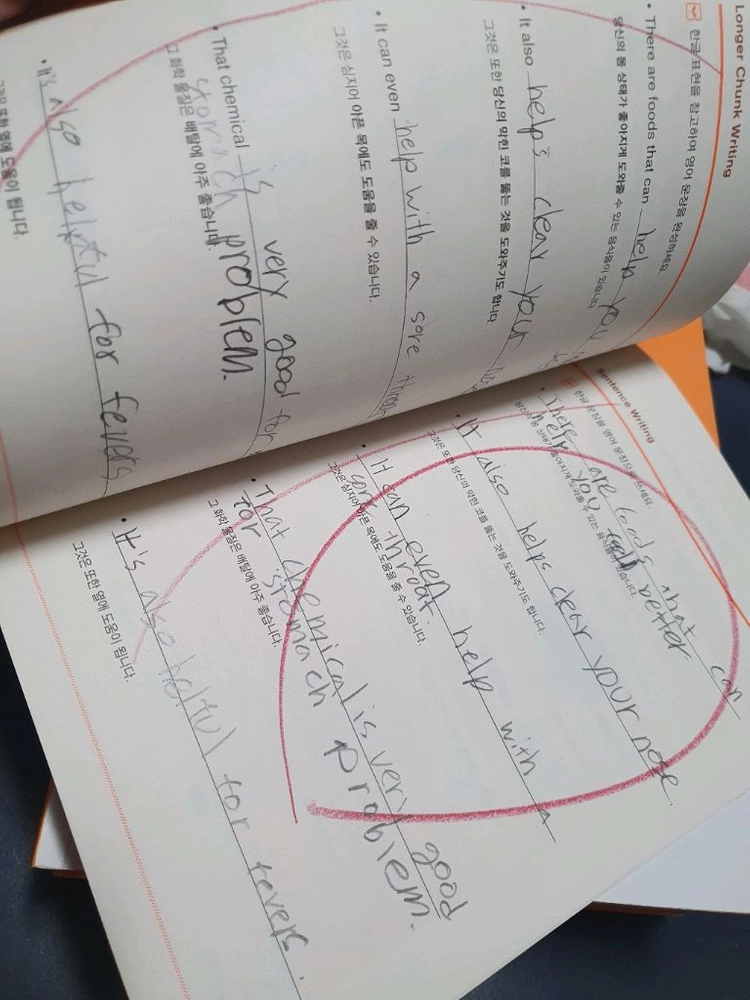 Longer Chunk Writing
한글 표현을 참고하여 영어 문장을 완성하세요.
• There are foods that can help you
당신의 몸 상태가 좋아지게 도와줄 수 있는 음식들이 있습니다.
• It also helps clear your
그것은 또한 당신의 막힌 코를 뚫는 것을 도와주기도 합니다.
• It can even help with a sore
그것은 심지어 아픈 목에도 도움을 줄 수 있습니다.
• That chemical is very good for
stomach problem.
그 화학 물질은 배탈에 아주 좋습니다.
• It's also helpful for fevers
그것은 또한 열에 도움이 됩니다.
Sentence Writing
한글 문장을 영어 문장으로 쓰세요.
• There are foods that can
help you better
당신의 몸 상태가 좋아지게 도와줄 수 있는 음식들이 있습니다.
• It also helps clear your nose.
그것은 또한 당신의 막힌 코를 뚫는 것을 도와주기도 합니다.
• It can even help with a
sore throat.
그것은 심지어 아픈 목에도 도움을 줄 수 있습니다.
• That chemical is very good
for stomach problem.
그 화학 물질은 배탈에 아주 좋습니다.
• It's also helful for fevers.
그것은 또한 열에 도움이 됩니다.